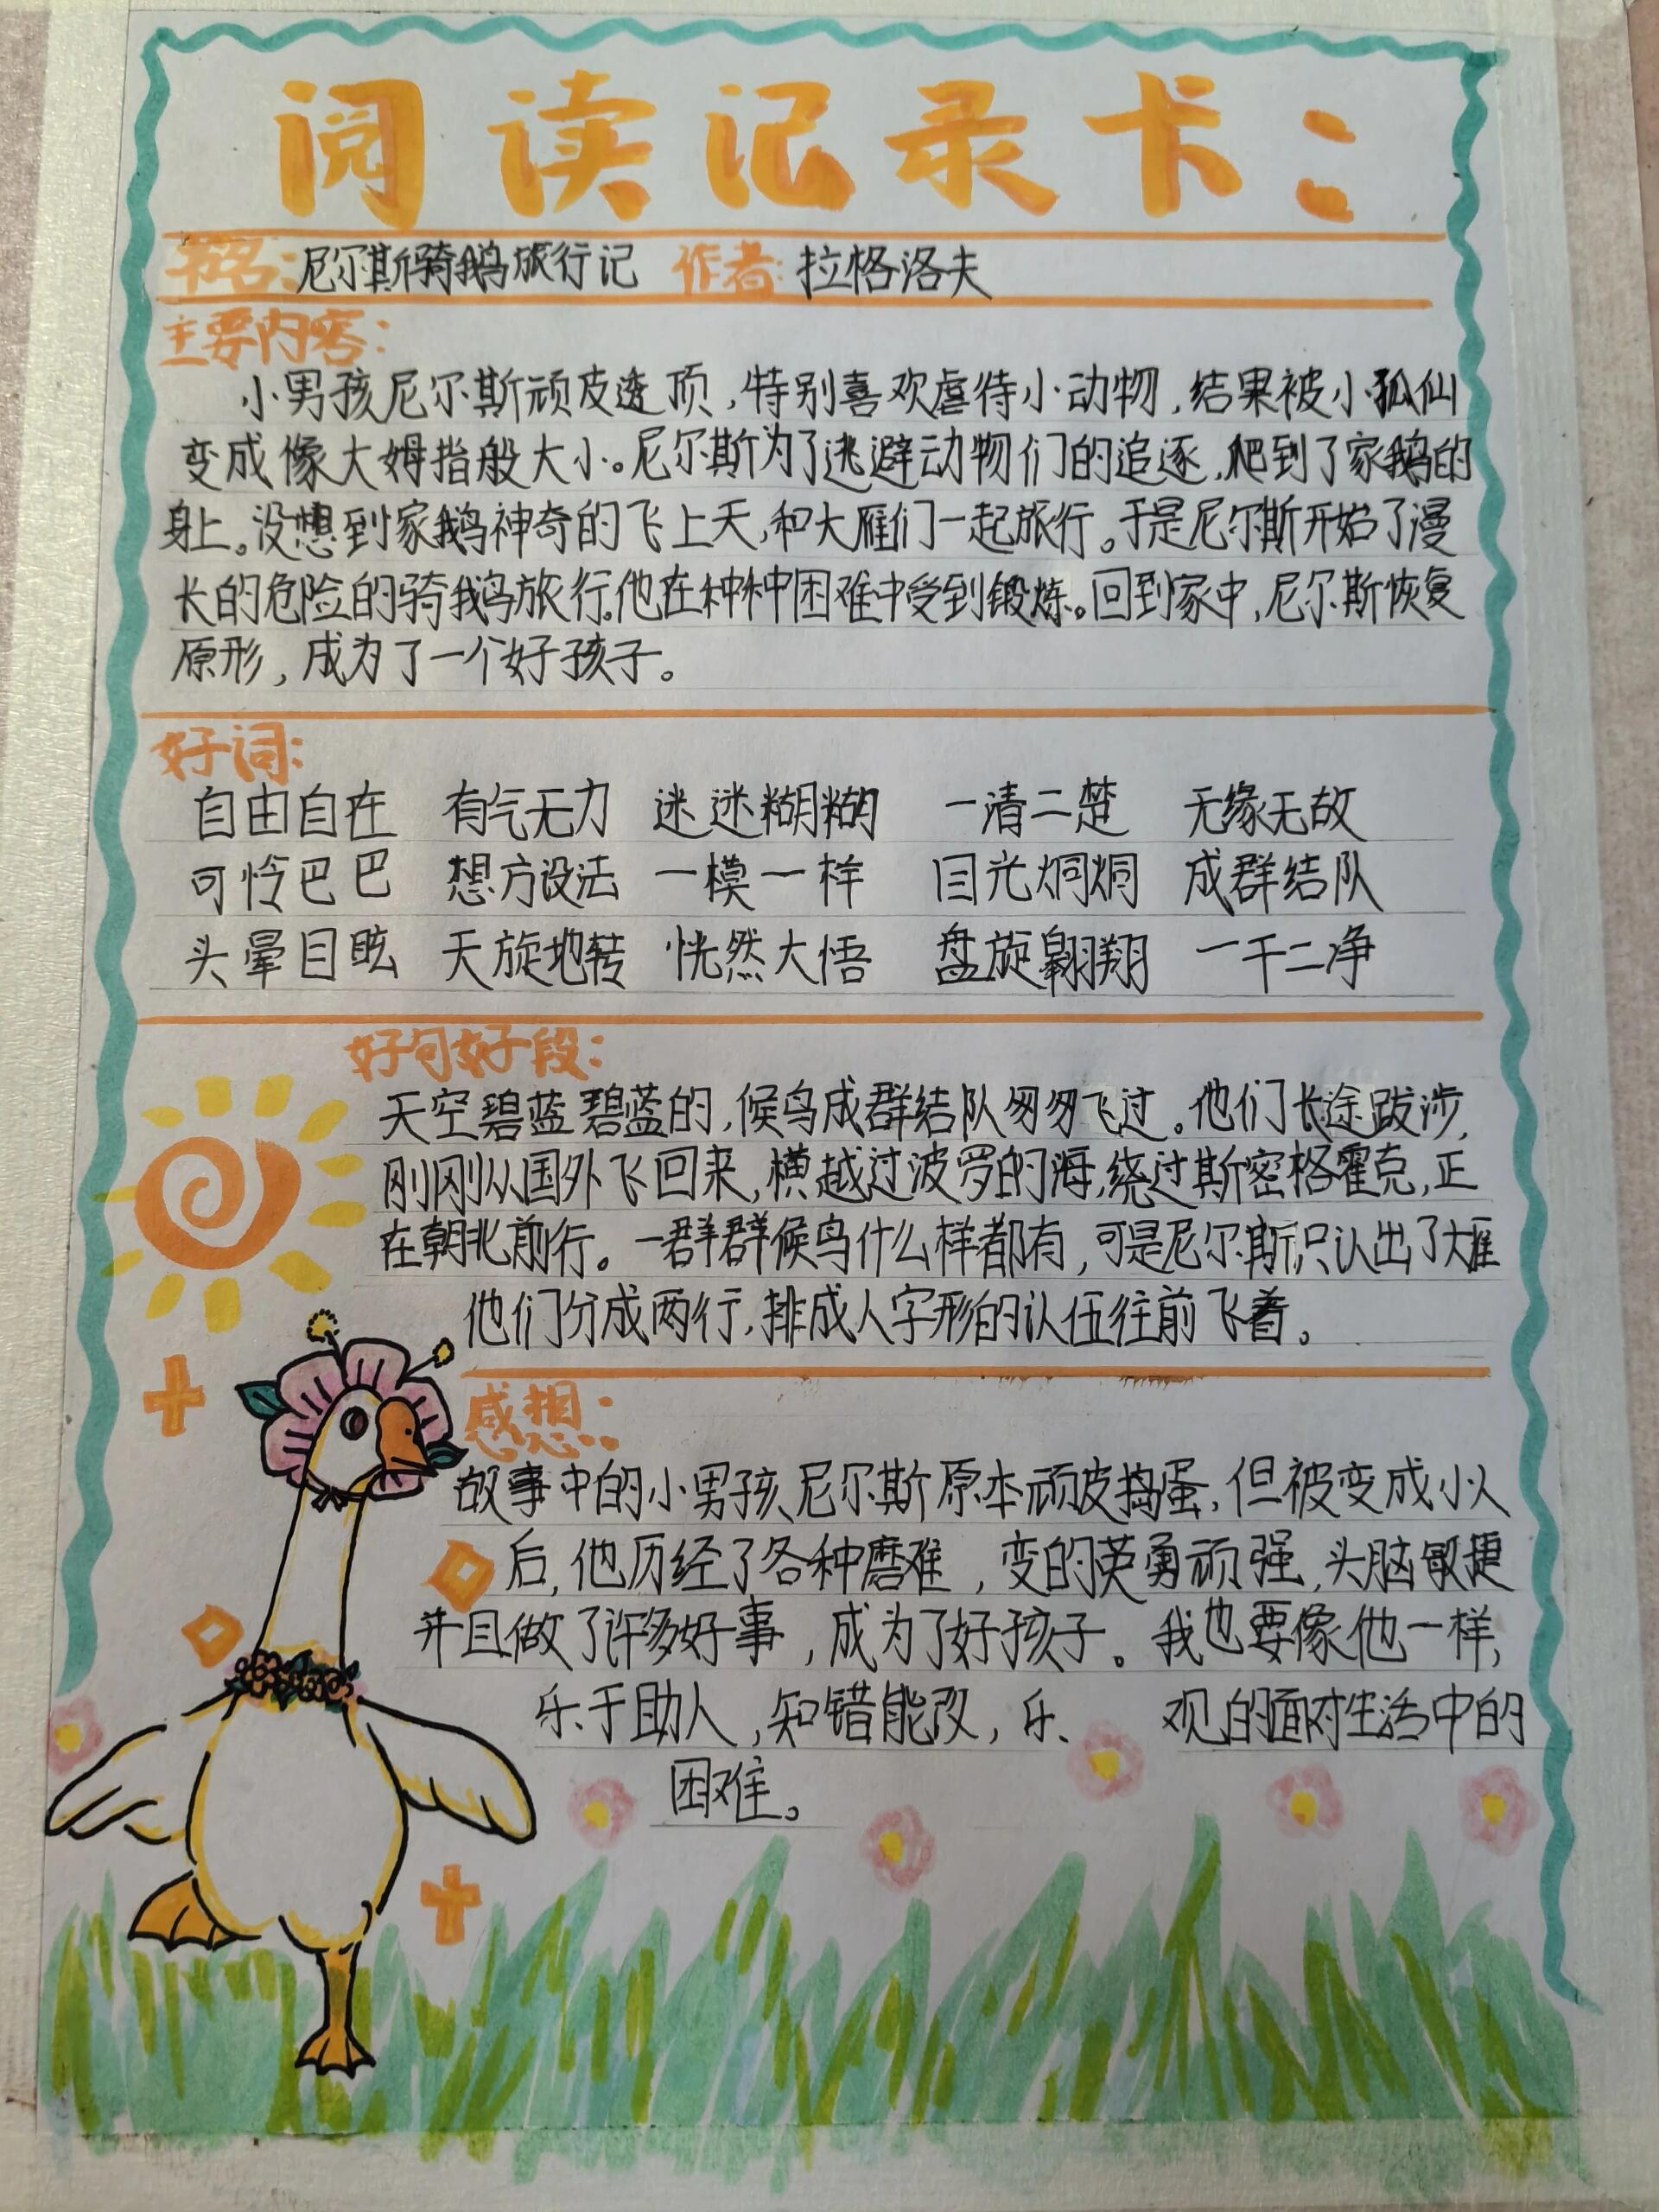 阅读记录卡:
书名:尼尔斯骑鹅旅行记 作者:拉格洛夫
主要内容:
小男孩尼尔斯顽皮透顶,特别喜欢虐待小动物,结果被小狐仙
变成像大姆指般大小。尼尔斯为了逃避动物们的追逐,爬到了家鹅的
身上。没想到家鹅神奇的飞上天,和大雁们一起旅行。于是尼尔斯开始了漫
长的危险的骑鹅旅行。他在种种困难中受到锻炼。回到家中,尼尔斯恢复
原形,成为了一个好孩子。
好词:
自由自在 有气无力 迷迷糊糊 一清二楚 无缘无故
可怜巴巴 想方设法 一模一样 目光炯炯 成群结队
头晕目眩 天旋地转 恍然大悟 盘旋翱翔 一干二净
好句好段:
天空碧蓝碧蓝的,候鸟成群结队匆匆飞过。他们长途跋涉,
刚刚从国外飞回来,横越过波罗的海,绕过斯密格霍克,正
在朝北前行。一群群候鸟什么样都有,可是尼尔斯只认出了大雁
他们分成两行,排成人字形的队伍往前飞着。
感想:
故事中的小男孩尼尔斯原本顽皮捣蛋,但被变成小人
后,他历经了各种磨难,变的英勇顽强,头脑敏捷
并且做了许多好事,成为了好孩子。我也要像他一样,
乐于助人,知错能改,乐 观的面对生活中的
困难。